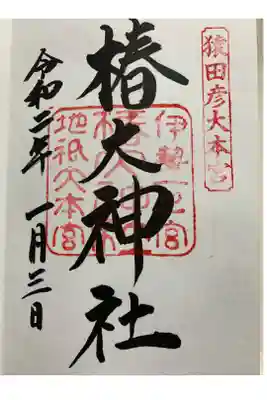 猿田彦大本宮
椿大神社
伊勢一之宮
椿大神社
地祇大本宮
令和二年一月三日